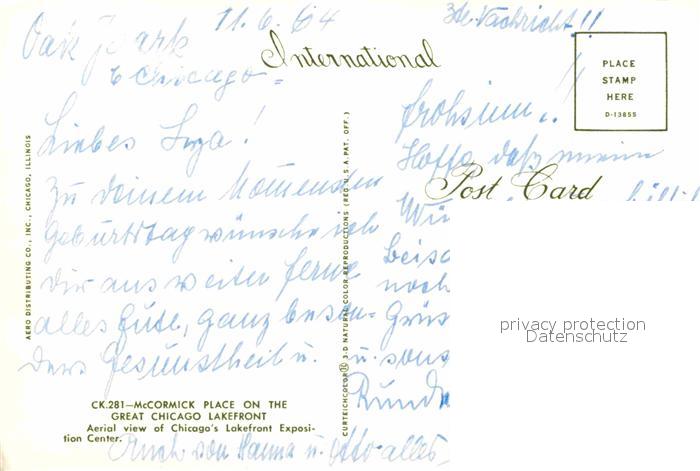 Oak Park 11.6.64
b Chicago
3te Nachricht!!
International
Liebes Inga!
Zu Deinem kommenden
Geburtstag wünsche ich
Dir aus weiter Ferne
alles Gute, ganz beson-
ders Gesundheit u.
Frohsinn..!!
Hoffe daß meine
Post Card
Wir
noch
Grüs
u. sons
Rund
Auch von Hanna u. Otto alles
PLACE
STAMP
HERE
D-13855
privacy protection
Datenschutz
AERO DISTRIBUTING CO., INC., CHICAGO, ILLINOIS
CURTEICHCOLOR® 3-D NATURAL COLOR REPRODUCTIONS (REG. U.S.A. PAT. OFF.)
CK.281—McCORMICK PLACE ON THE
GREAT CHICAGO LAKEFRONT
Aerial view of Chicago's Lakefront Exposi-
tion Center.